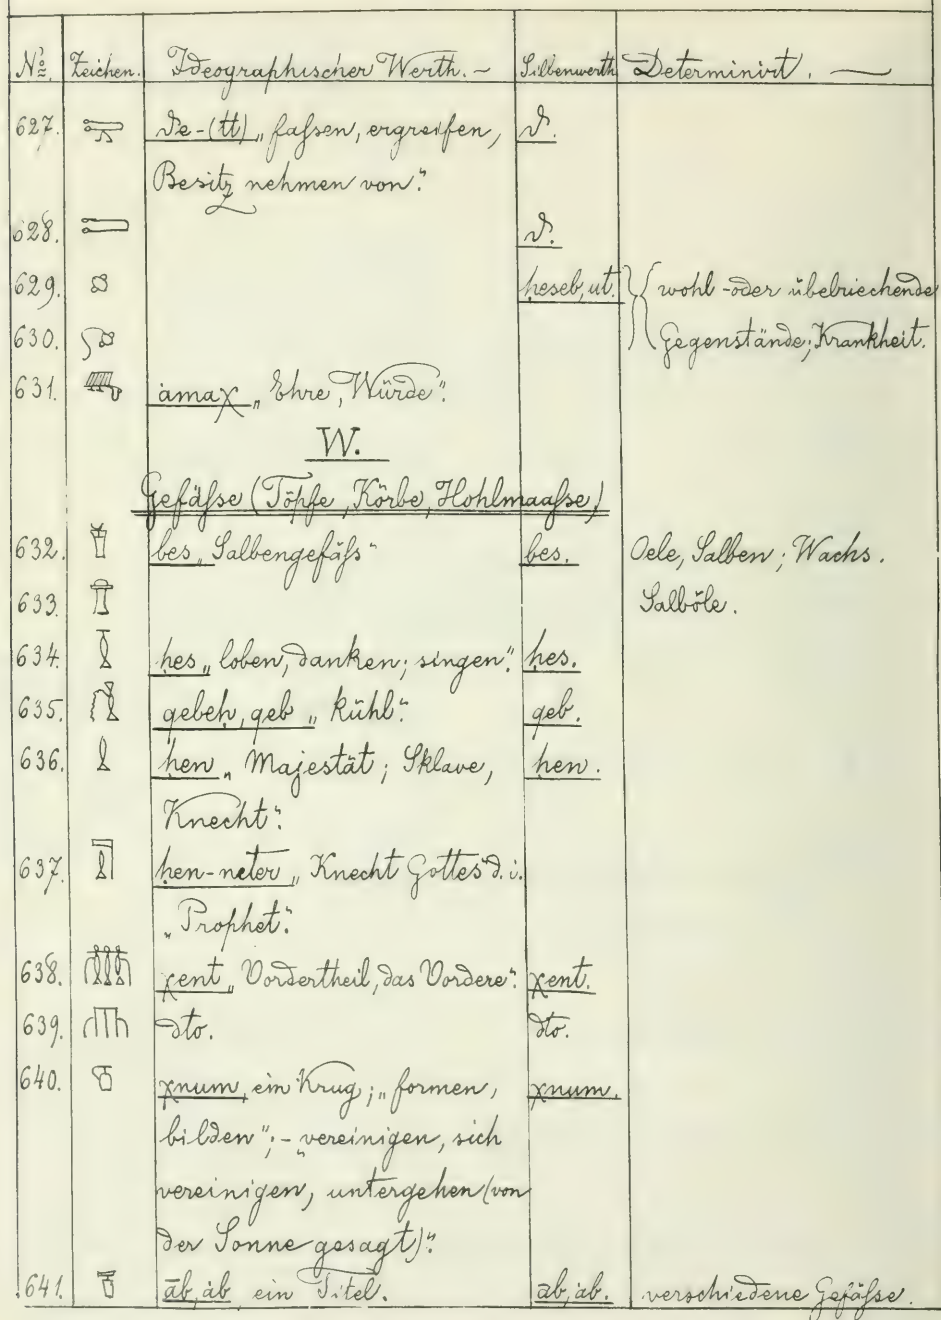 No. Zeichen. Ideographischer Werth. – Silbenwerth Determinirt. —
627. ϑe-(tt) „fassen, ergreifen, ϑ.
Besitz nehmen von“.
628. ϑ.
629. ḥeseb, ut. wohl- oder übelriechende
630. Gegenstände; Krankheit.
631. ȧmaχ „Ehre, Würde“.
W.
Gefässe (Töpfe, Körbe, Hohlmaasse)
632. bes „Salbengefäss“ bes. Oele, Salben; Wachs.
633. Salböle.
634. ḥes „loben, danken; singen“. ḥes.
635. qebeḥ, qeb „kühl“. qeb.
636. ḥen „Majestät; Sklave, ḥen.
Knecht“.
637. ḥen-neter „Knecht Gottes“ d. i.
„Prophet“.
638. χent „Vordertheil, das Vordere“. χent.
639. dto. dto.
640. χnum, ein Krug; „formen, χnum.
bilden“; – „vereinigen, sich
vereinigen, untergehen (von
der Sonne gesagt)“.
641. āb, ȧb ein Titel. āb, ȧb. verschiedene Gefässe.